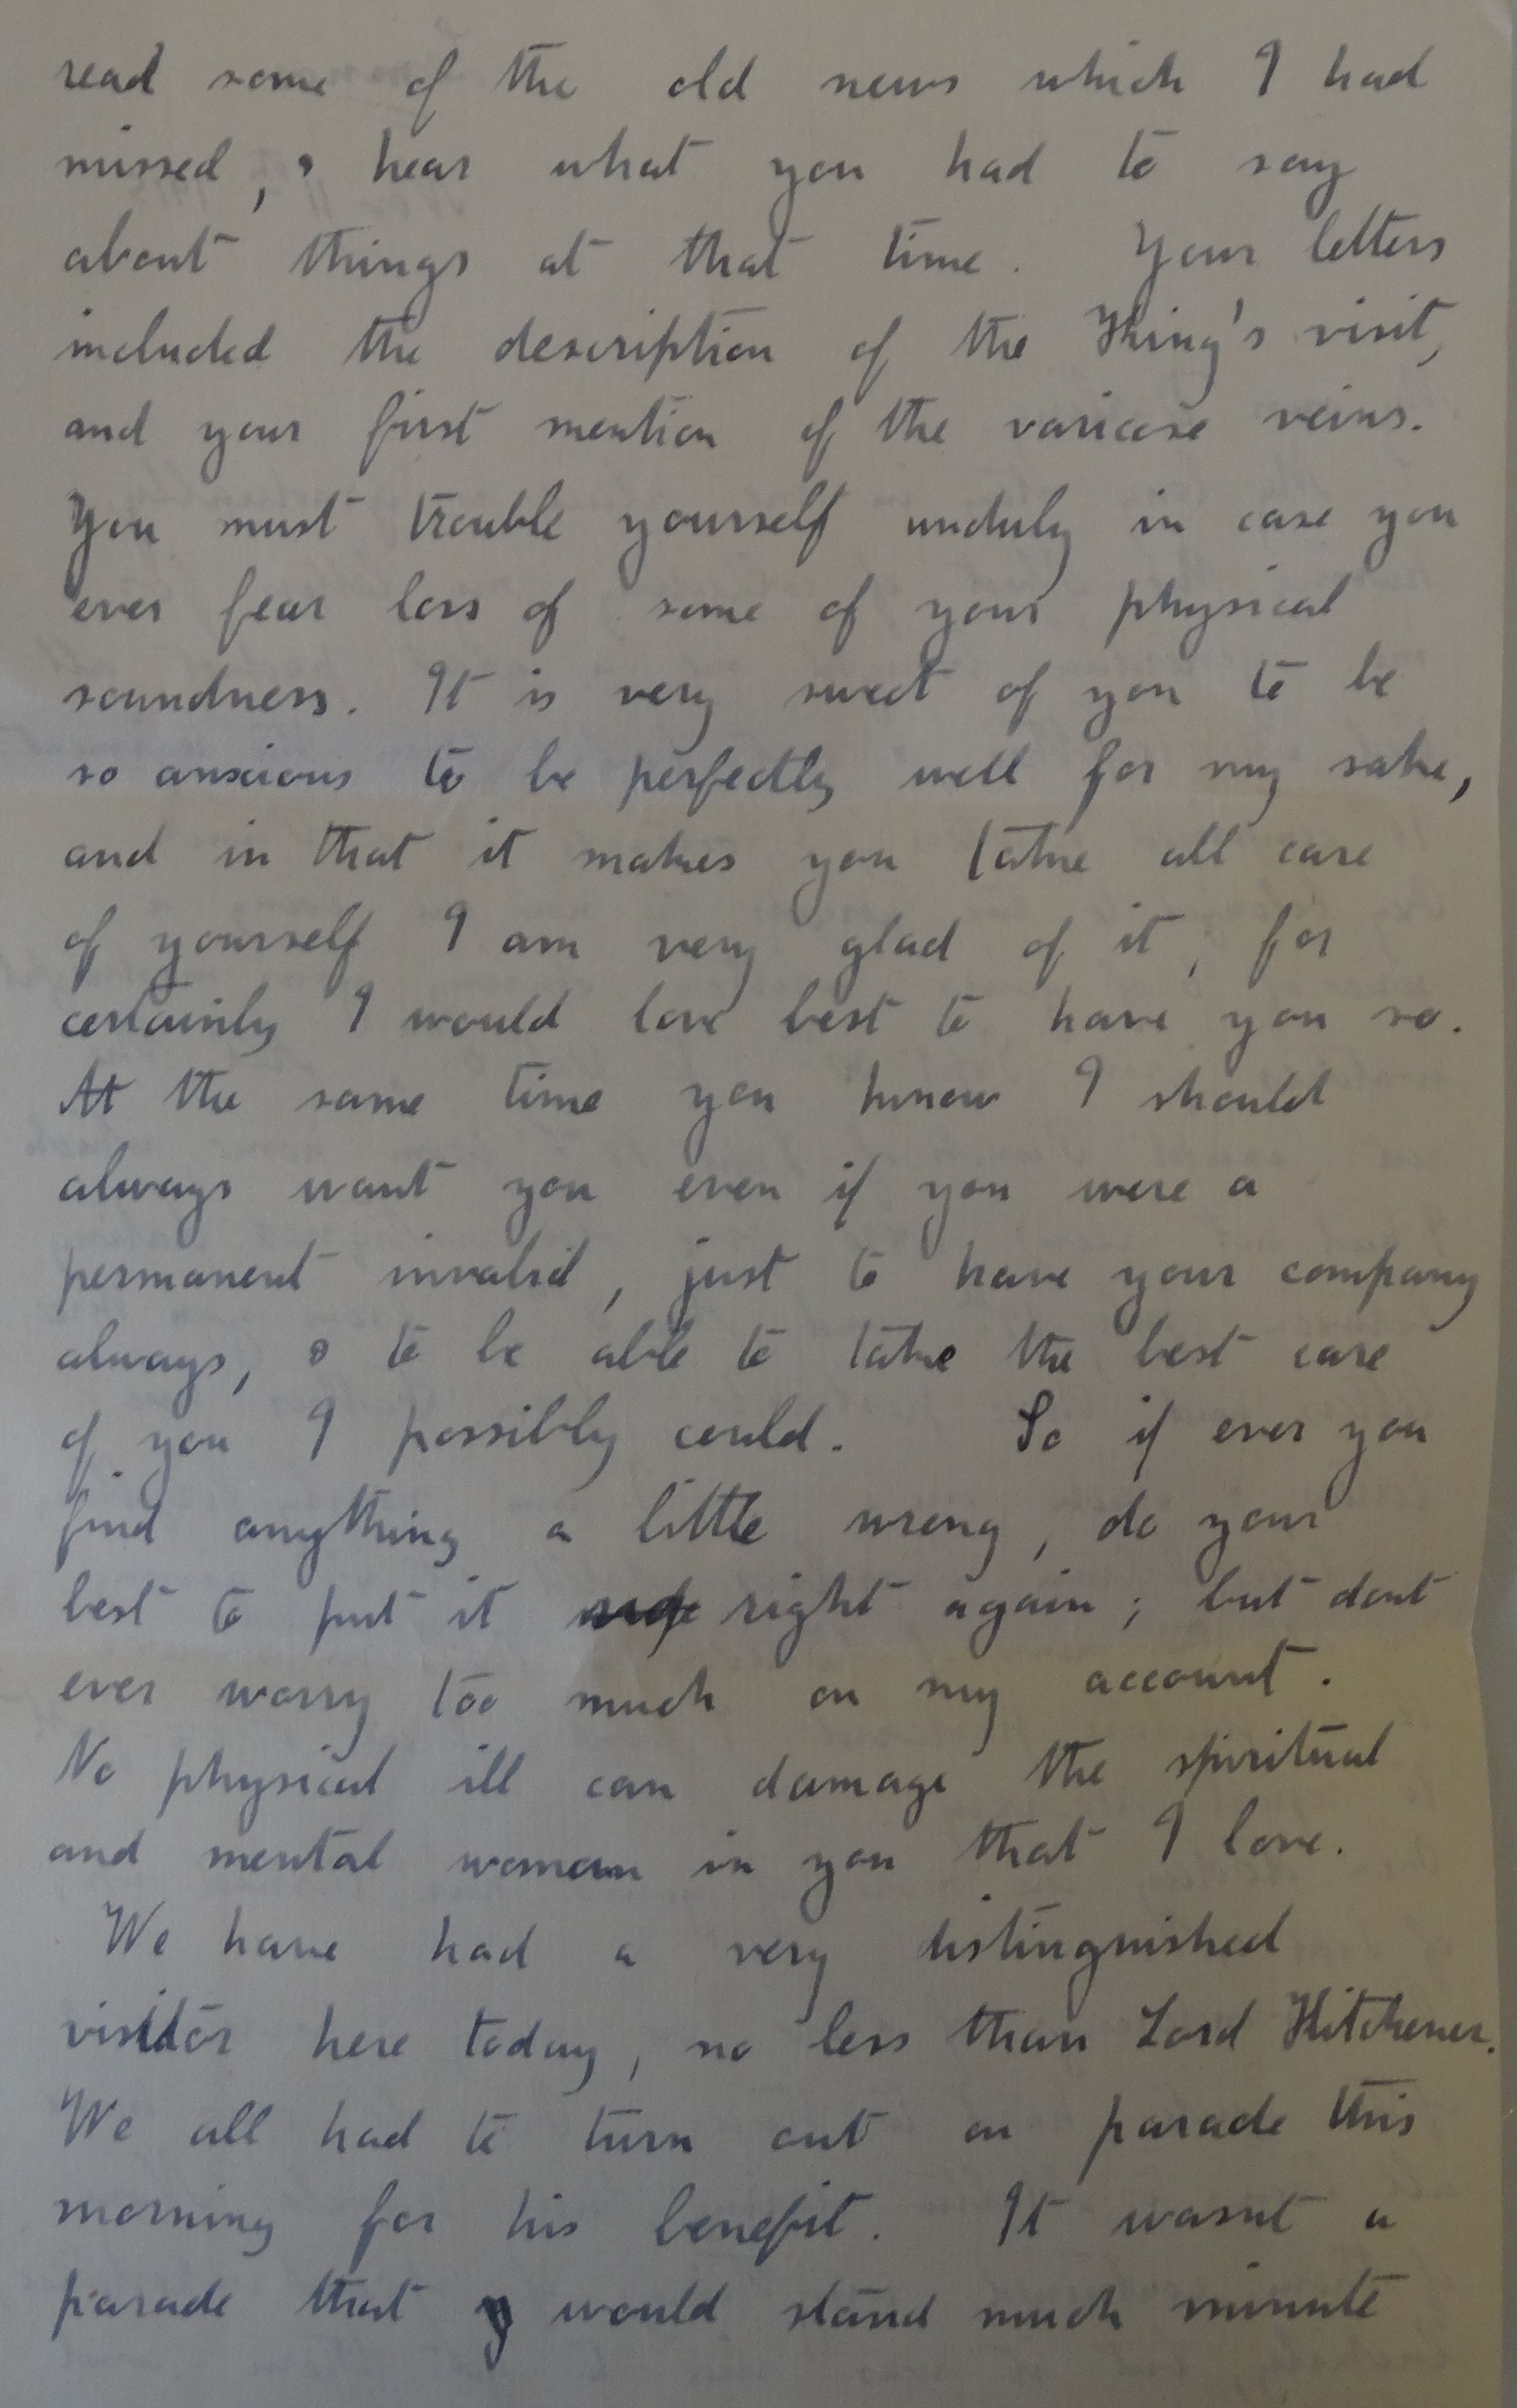 read some of the old news which I had
missed, & hear what you had to say
about things at that time. Your letters
included the description of the King's visit,
and your first mention of the varicose veins.
You must trouble yourself unduly in case you
ever fear loss of some of your physical
soundness. It is very sweet of you to be
so anxious to be perfectly well for my sake,
and in that it makes you take all care
of yourself I am very glad of it, for
certainly I would love best to have you so.
At the same time you know I should
always want you even if you were a
permanent invalid, just to have your company
always, & to be able to take the best care
of you I possibly could. So if ever you
find anything a little wrong, do your
best to put it right again; but dont
ever worry too much on my account.
No physical ill can damage the spiritual
and mental woman in you that I love.
We have had a very distinguished
visitor here today, no less than Lord Kitchener.
We all had to turn out on parade this
morning for his benefit. It wasnt a
parade that would stand much minute